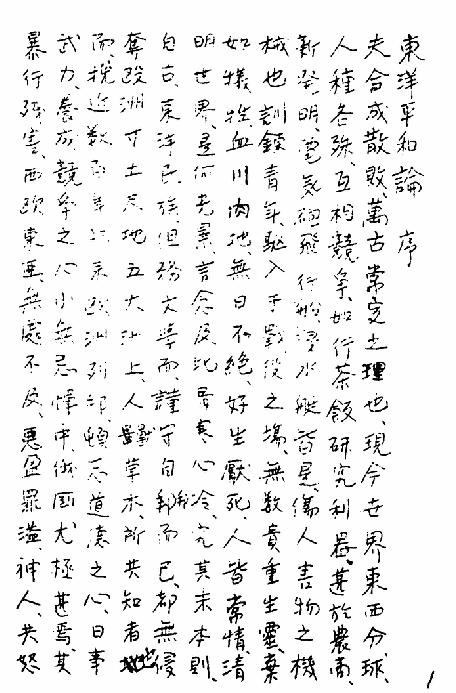 東洋平和論 序
夫合成散敗、萬古常定之理也、現今世界東西分球、
人種各殊、互相競爭、如行茶飯、研究利器、甚於農商、
新發明、電氣砲、飛行船、浸水艇、皆是傷人害物之機
械也、訓鍊青年、驅入于戰役之場、無數貴重生靈、棄
如犧牲、血川肉地、無日不絶、好生厭死、人皆常情、清
明世界、是何光景、言念及此、骨寒心冷、究其末本、則
自古、東洋民族、但務文學而、謹守自邦而已、都無侵
奪欧洲寸土尺地、五大洲上、人獸草木、所共知者也
而、挽近數百年以來、欧洲列邦、頓忘道德之心、日事
武力、養成競爭之心、小無忌憚、中俄國尤極甚焉、其
暴行殘害、西欧東亞、無處不及、惡盈罪溢、神人共怒
1